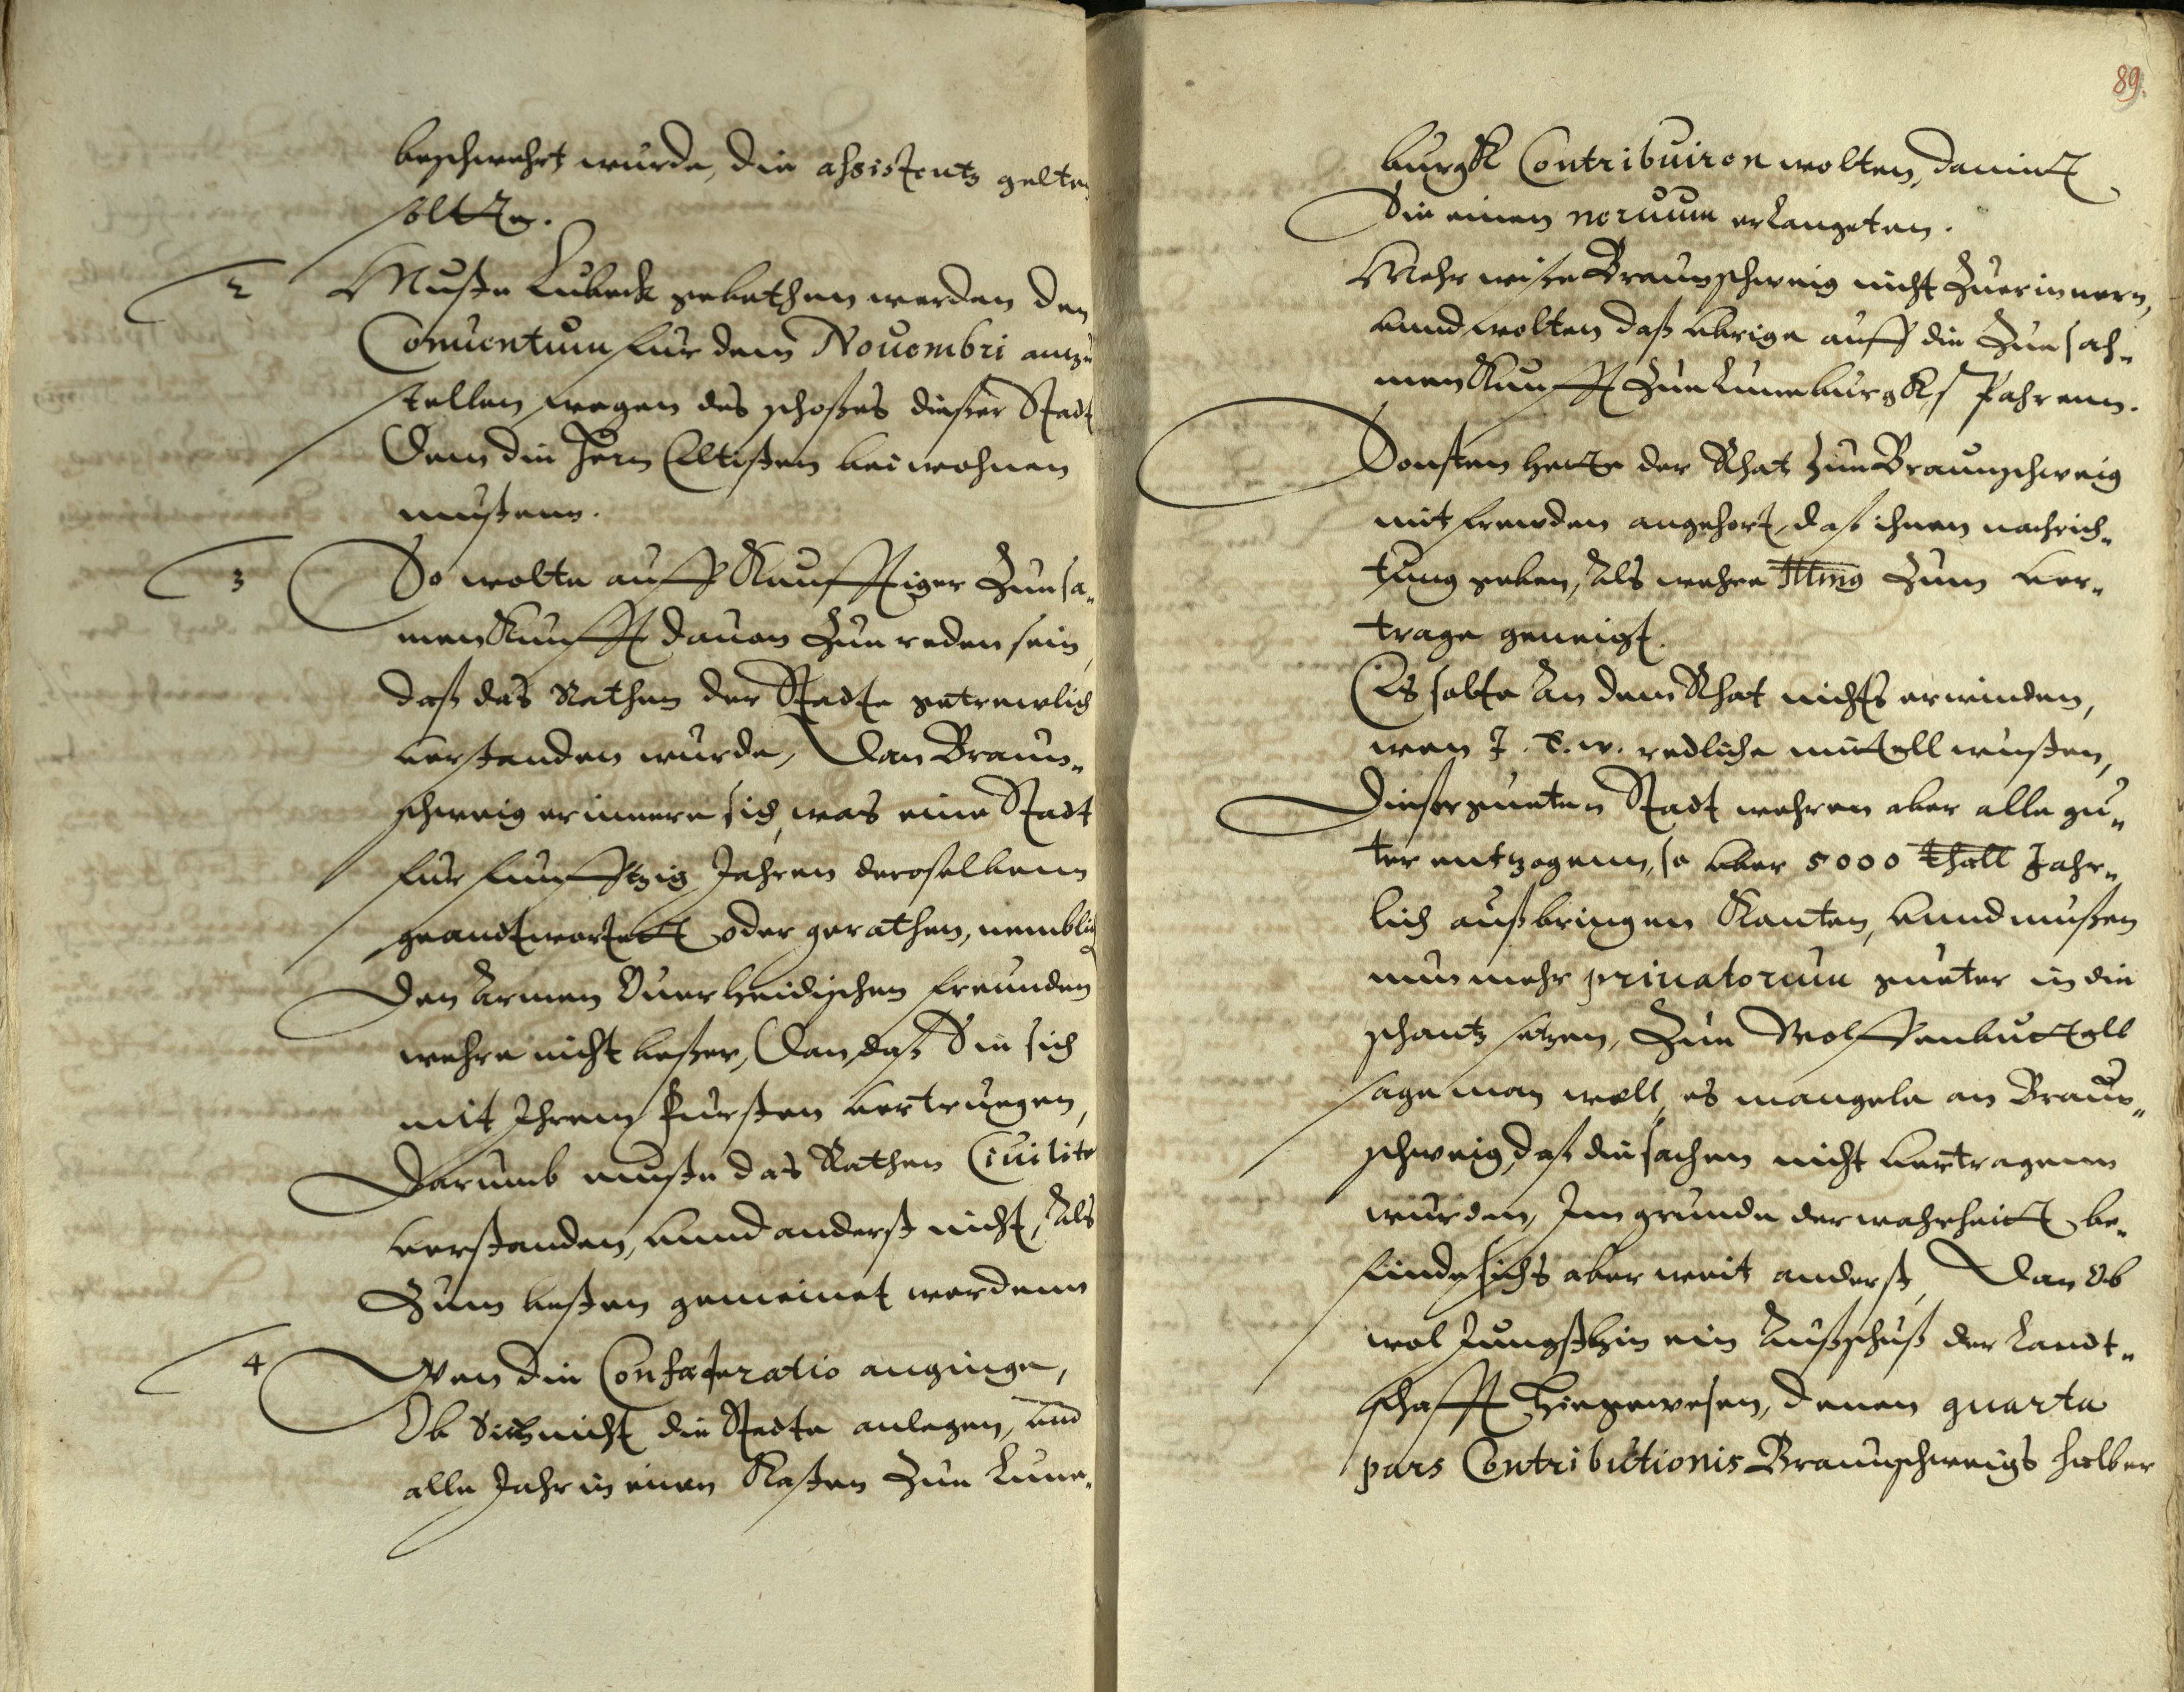 beschwehrt wurde, die assistentz gelten
soltte.
2 Muste Lubeck gebethen werden den
Conuentum fur dem Nouembri antzu
stellen wegen des schoßes dießer Stadt
Dem die Hern Eltisten bei wohnen
mustenn.
3 So wolte auff kunfftiger Zusa„
menkunfft dauon Zue reden sein,
daß das Rathen der Stedte getrewlich
verstanden wurde, Dan Braun„
schweig erinnere sich, was eine Stadt
fur funfftzig Jahren deroselbenn
geandtwortett oder gerathen, nemblich
Den armen Vuerheidischen freunden
wehre nicht beßer, Dan daß Sie sich
mit Ihrem Fursten vertruegen,
Darumb muste das Rathen Ciuilite
verstanden, vnnd anderst nicht, Als
Zum besten gemeinet werdenn
4 Wen die Confæderatio anginge,
Ob Sich nicht die Stedte anlegen, vnd
alle Jahr in einen Kasten Zue Lune„
89.
burgk Contribuiren wolten, damitt
Sie einen neruum erlangeten.
Mehr wiße Braunschweig nicht Zuerinnern,
vnnd wolten daß vbrige auff die Zuesah„
menkunfft Zue Luneburgk spahrenn.
Sonsten hette der Rhat Zue Braunschweig
mit frewden angehort, daß ihnen nachrich„
tung geben, Als wehre Illmg Zum ver„
trage geneigt.
Es solte An dem Rhat nichts erwinden,
wen I. E. w. redliche mittell wusten,
Dießer gueten Stadt wehren aber alle gu„
ter entzogenn, so vber 5000 thall Jahr„
lich außbringen Kanten, vnnd musten
nunmehr priuatorum gueter in die
schantz setzen, Zue Wolffenbuttell
sage man woll, es mangele an Braun„
schweig, daß die sachen nicht vertragenn
wurden, Im grunde der wahrheitt be„
finde sichs aber weit anderst, Dan Ob
wol Jungsthin ein Außschuß der Landt„
schafft hiegewesen, denen quarta
pars Contributionis Braunschweigs halber